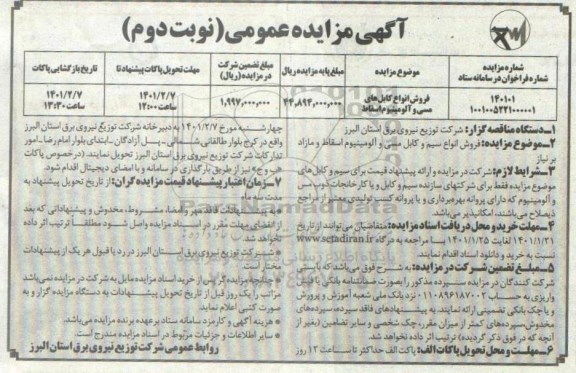 آگهی مزایده عمومی (نوبت دوم)
شماره مزایده
شماره فراخوان در سامانه ستاد
موضوع مزایده
مبلغ پایه مزایده ریال
مبلغ تضمین شرکت در مزایده (ریال)
مهلت تحویل پاکات پیشنهادها
تاریخ بازگشایی پاکات
۱۴۰۱۰۱
۱۰۰۱۰۰۵۲۲۱۰۰۰۰۰۱
فروش انواع کابل‌های مسی و آلومینیوم اسقاط
۴۴,۸۹۳,۰۰۰,۰۰۰
۱,۹۹۷,۰۰۰,۰۰۰
۱۴۰۱/۲/۷
ساعت ۱۲:۰۰
۱۴۰۱/۲/۷
ساعت ۱۳:۳۰
۱ـ دستگاه مناقصه گزار: شرکت توزیع نیروی برق استان البرز
۲ـ موضوع مزایده: فروش انواع سیم و کابل مسی و آلومینیوم اسقاط و مازاد
بر نیاز
۳ـ شرایط لازم: شرکت در مزایده و ارائه پیشنهاد قیمت برای سیم و کابل‌های
موضوع مزایده فقط برای شرکتهای سازنده سیم و کابل و یا کارخانجات ذوب مس
و آلومینیوم که دارای پروانه بهره‌برداری و یا پروانه کسب تولیدی معتبر از مراجع
ذیصلاح می‌باشند، امکانپذیر می‌باشد.
۴ـ مهلت خرید و محل دریافت اسناد مزایده: متقاضیان می‌توانند از تاریخ
۱۴۰۱/۱/۲۱ لغایت ۱۴۰۱/۱/۲۵ با مراجعه به درگاه www.setadiran.ir
نسبت به خرید و دانلود اسناد اقدام نمایند.
۵ـ مبلغ تضمین شرکت در مزایده: به شرح فوق می‌باشد که بایستی
شرکت کنندگان در مزایده سپرده مذکور را بصورت ضمانتنامه بانکی یا فیش
واریزی به حساب ۱۱۰۸۹۶۱۸۷۰۰۲ نزد بانک ملی شعبه آموزش و پرورش
و یا چک بانکی تضمینی ارائه نمایند. به پیشنهادهای فاقد سپرده، سپرده‌های
مخدوش، سپرده‌های کمتر از میزان مقرر، چک شخصی و سایر تضامین (بغیر از
آنچه که در فوق ذکر گردیده) ترتیب اثر داده نخواهد شد.
۶ـ مهلت و محل تحویل پاکات: الف: پاکت الف حداکثر تا ساعت ۱۲ روز
چهارشنبه مورخ ۱۴۰۱/۲/۷ به دبیرخانه شرکت توزیع نیروی برق استان البرز
واقع در کرج بلوار طالقانی شمالی ـ پل آزادگان ـ ابتدای بلوار امام رضا ـ امور
تدارکات شرکت توزیع نیروی برق استان البرز تحویل نمایند. (در خصوص پاکات
«ب و ج» نیز از طریق بارگذاری در سامانه و با امضای دیجیتال اقدام شود.
۷ـ زمان اعتبار پیشنهاد قیمت مزایده گران: از تاریخ تحویل پیشنهاد به
مدت سه ماه
* به پیشنهادات فاقد مهر و امضا، مشروط، مخدوش و پیشنهاداتی که بعد
از انقضای مهلت مقرر در اسناد مزایده واصل شود مطلقا ترتیب اثر داده
نخواهد شد.
* شرکت توزیع نیروی برق استان البرز در رد یا قبول هر یک از پیشنهادات
مختار است.
* چنانچه مزایده گر پس از خرید اسناد مزایده مایل به شرکت در مزایده نمی‌باشد
مراتب را یک روز قبل از تاریخ تحویل پیشنهادات به دستگاه مزایده گزار و به
صورت کتبی اعلام نماید.
* هزینه آگهی و کارمزد سامانه ستاد بر عهده برنده مزایده می‌باشد.
* سایر اطلاعات و جزئیات مربوط در اسناد مزایده مندرج است
روابط عمومی شرکت توزیع نیروی برق استان البرز